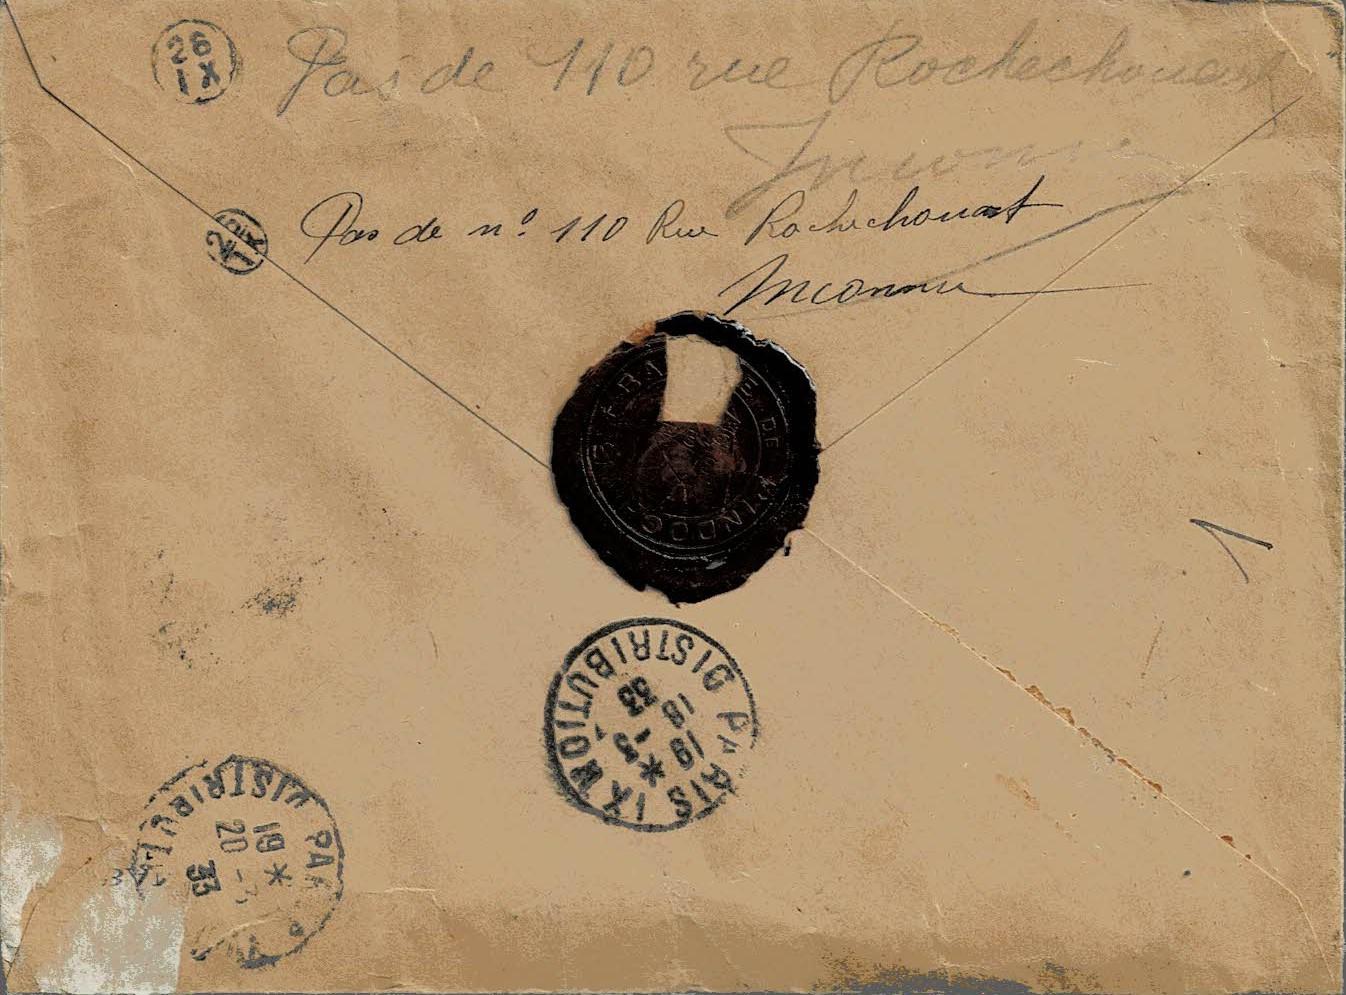 26
IX
Pas de 110 rue Rochechouart
Inconnu
Pas de n° 110 Rue Rochechouart
Inconnu
DE L'INDOC
1
PARIS IX DISTRIBUTION
19 *
18 - 3
33
PA
DISTRIBUT
19 *
20 -
33